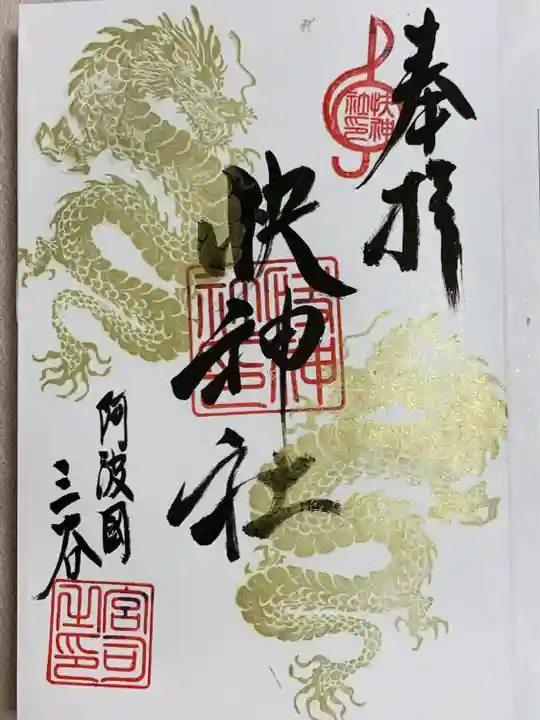 奉拝
快神社印
快神社
阿波国
三谷
宮司之印